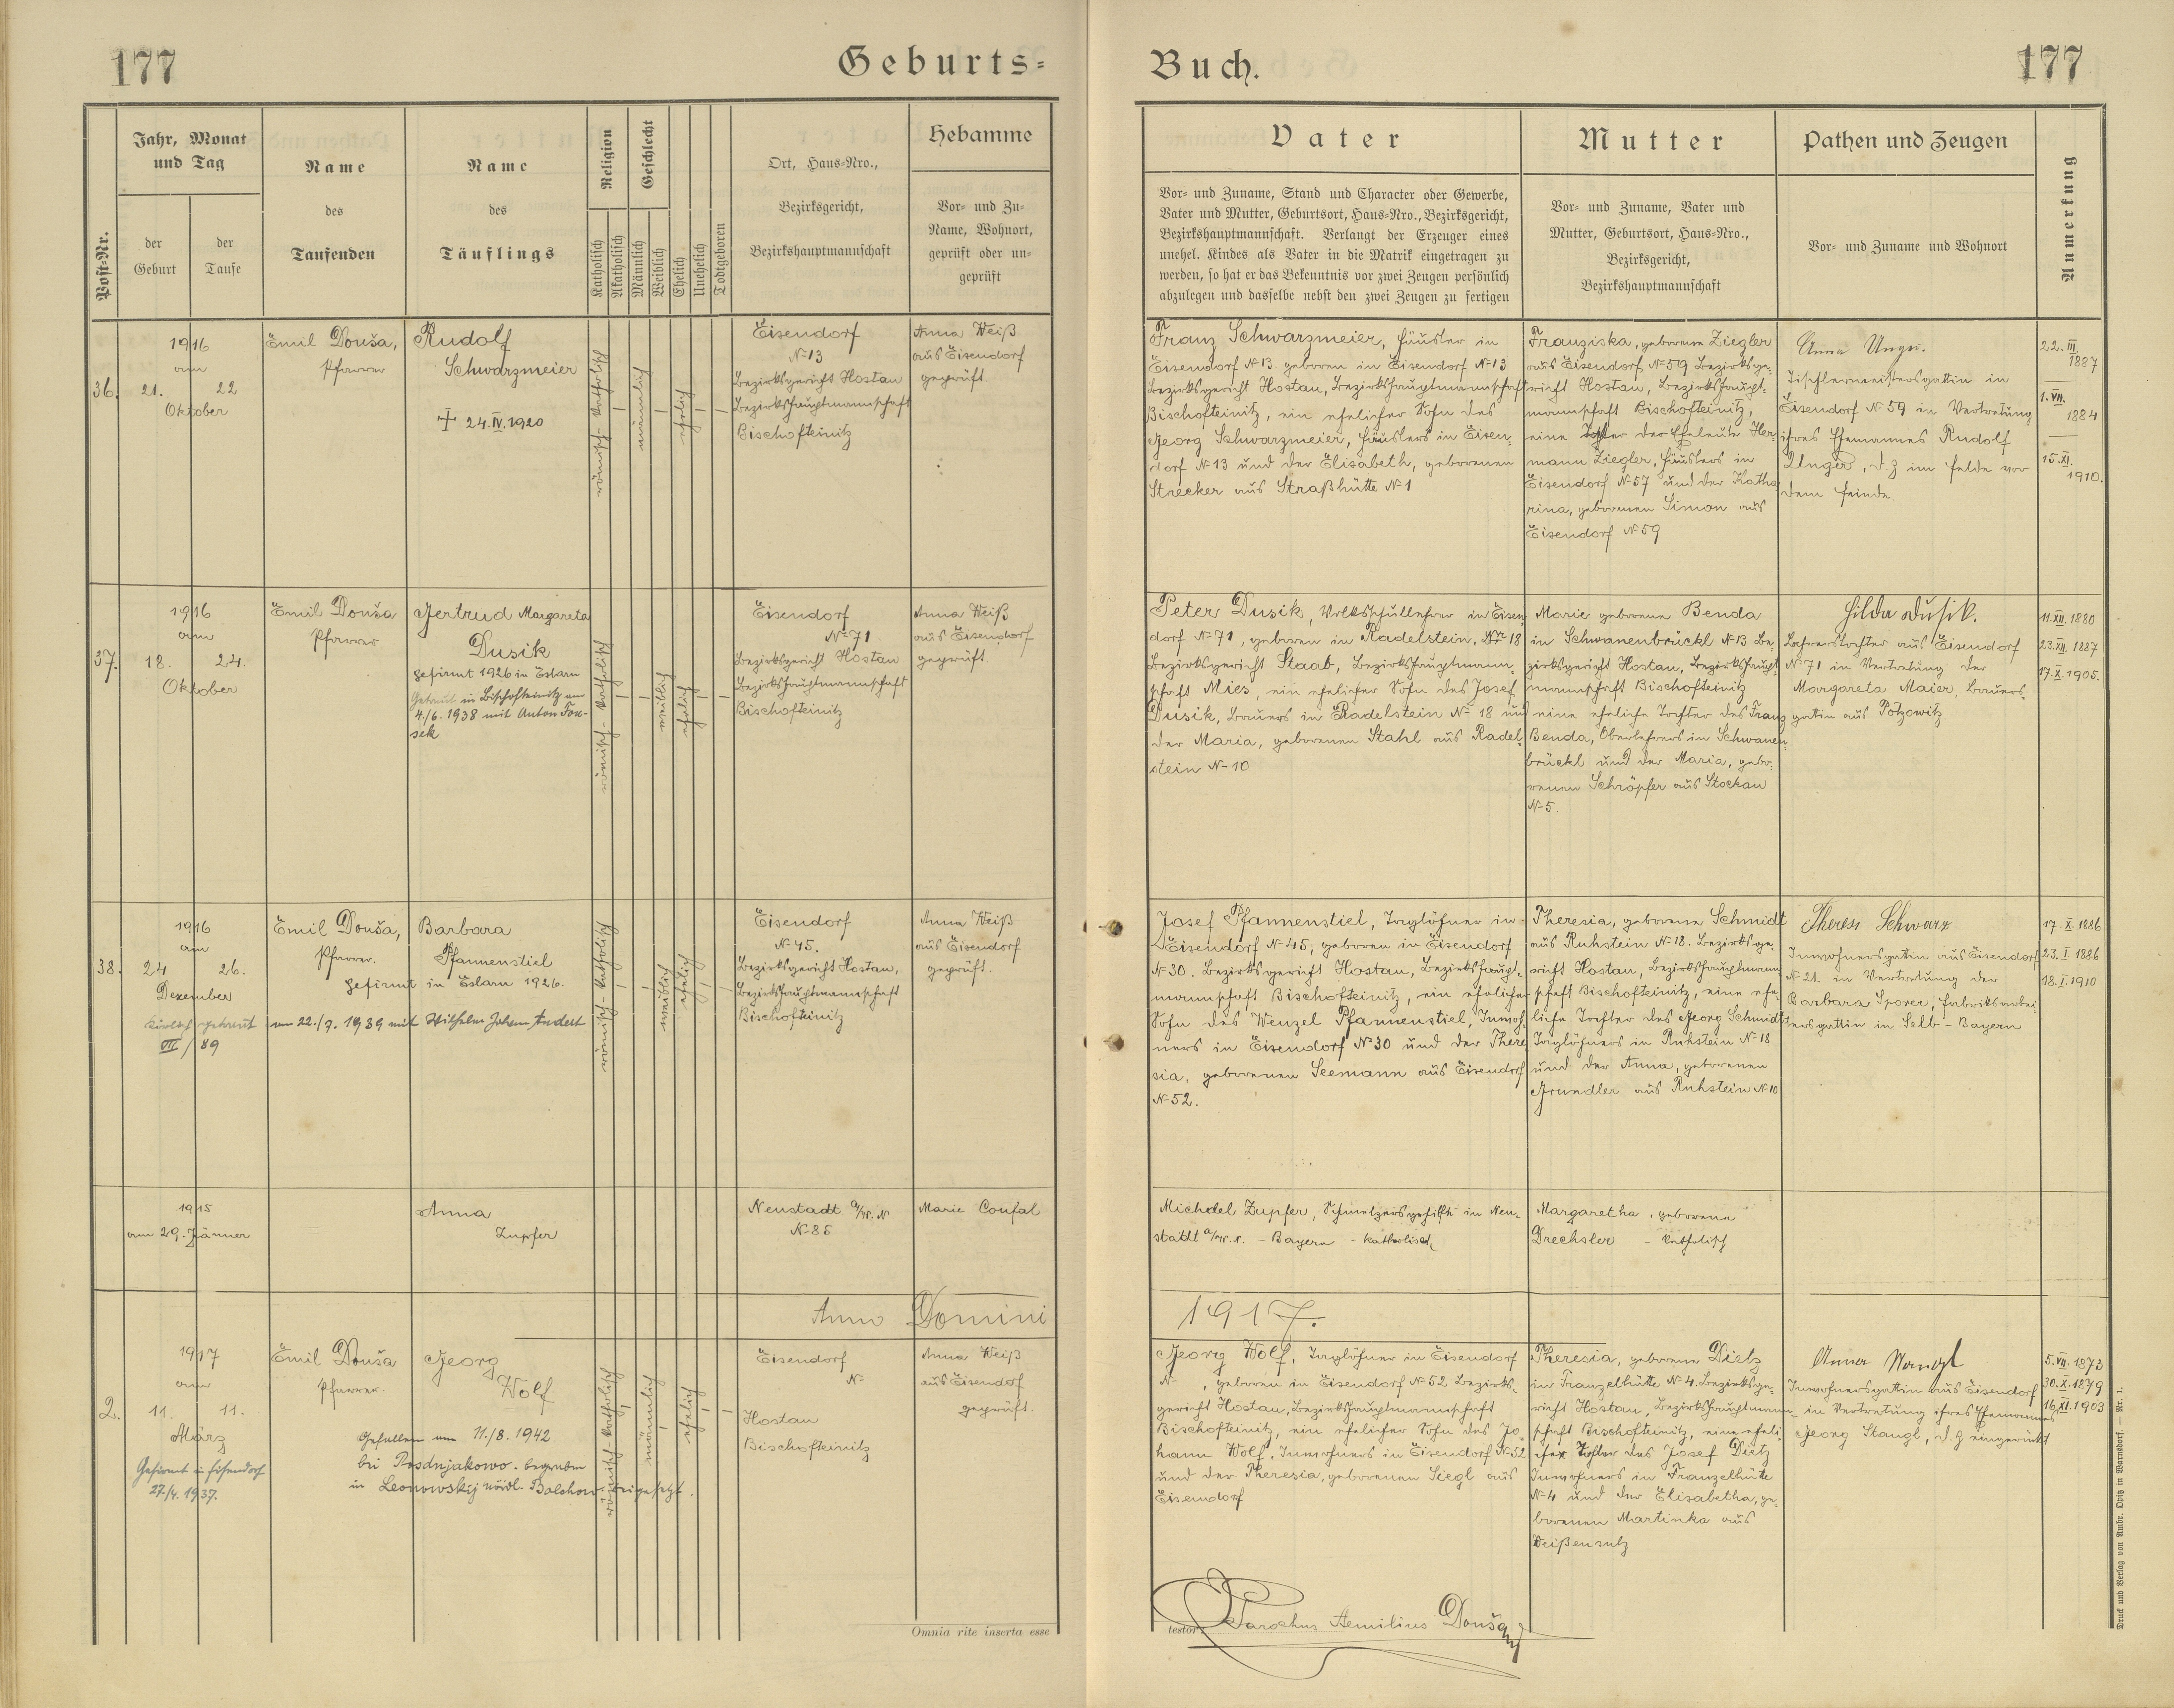 177
Geburts-
Buch.
177
Post-Nr.
Jahr, Monat
und Tag
der
Geburt
der
Taufe
Name
des
Taufenden
Name
des
Täuflings
Religion
Katholisch
Akatholisch
Geschlecht
Männlich
Weiblich
Ehelich
Unehelich
Todtgeboren
Ort, Haus-Nro.,
Bezirksgericht,
Bezirkshauptmannschaft
Hebamme
Vor- und Zu-
Name, Wohnort,
geprüft oder un-
geprüft
Vater
Vor- und Zuname, Stand und Character oder Gewerbe,
Vater und Mutter, Geburtsort, Haus-Nro., Bezirksgericht,
Bezirkshauptmannschaft. Verlangt der Erzeuger eines
unehel. Kindes als Vater in die Matrik eingetragen zu
werden, so hat er das Bekenntnis vor zwei Zeugen persönlich
abzulegen und dasselbe nebst den zwei Zeugen zu fertigen
Mutter
Vor- und Zuname, Vater und
Mutter, Geburtsort, Haus-Nro.,
Bezirksgericht,
Bezirkshauptmannschaft
Pathen und Zeugen
Vor- und Zuname und Wohnort
Anmerkung
36.
1916
am
21. 22
Oktober
Emil Douša,
Pfarrer
Rudolf
Schwarzmeier
+ 24.IV.1920
römisch-katholisch
männlich
ehelich
Eisendorf
N-13
Bezirksgericht Hostau
Bezirkshauptmannschaft
Bischofteinitz
Anna Weiß
aus Eisendorf
geprüft
Franz Schwarzmeier, Häusler in
Eisendorf N-13. geboren in Eisendorf N-13
Bezirksgericht Hostau, Bezirkshauptmannschaft
Bischofteinitz, ein ehelicher Sohn des
Georg Schwarzmeier, Häuslers in Eisen-
dorf N-13 und der Elisabeth, geborenen
Strecker aus Straßhütte N-1
Franziska, geborene Ziegler
aus Eisendorf, N-59 Bezirksge-
richt Hostau, Bezirkshaupt-
mannschaft Bischofteinitz,
eine Tochter der Eheleute Her-
mann Ziegler, Häuslers in
Eisendorf N-57 und der Katha
rina, geborenen Simon aus
Eisendorf N-59
Anna Unger.
Tischlermeistersgattin in
Eisendorf N-59 in Vertretung
ihres Ehemannes Rudolf
Unger, d. Z im Felde vor
dem Feinde.
22. III.
1887
1. VII.
1884
15. XI.
1910.
37.
1916
am
18. 24.
Oktober
Emil Douša
Pfarrer
Gertrud Margareta
Dusik
gefirmt 1926 in Eslarn
Getraut in Bischofteinitz am
4./6. 1938 mit Anton
sek
römisch-katholisch
weiblich
ehelich
Eisendorf
N-71
Bezirksgericht Hostau
Bezirkshauptmannschaft
Bischofteinitz
Anna Weiß
aus Eisendorf
geprüft
Peter Dusik, Volksschullehrer in Eisen
dorf N-71, geboren in Radelstein, Nr 18
Bezirksgericht Staab, Bezirkshauptmann-
schaft Mies, ein ehelicher Sohn des Josef
Dusik, Bauers in Radelstein N- 18 und
der Maria, geborenen Stahl aus Radel-
stein N-10
Marie geborene Benda
in Schwanenbrückl N-13 Be-
zirksgericht Hostau, Bezirkshaupt
mannschaft Bischofteinitz
eine eheliche Tochter des Franz
Benda, Oberlehrers in Schwanen-
brückl und der Maria, gebo-
renen Schröpfer aus Stockau
N-5.
Hilda Dusik.
Lehrerstochter aus Eisendorf
N-71 in Vertretung der
Margareta Maier, Bauers-
gattin aus Potzowitz
11.XII. 1880
23.XII. 1887
17.X.1905.
38.
1916
am
24 26.
Dezember
Emil Douša,
Pfarrer.
Barbara
Pfannenstiel
gefirmt in Eslarn 1926.
kirchl. getraut am 22./7. 1939 mit Wilhelm Johann Andert
VII/89
römisch-katholisch
weiblich
ehelich
Eisendorf
N-45.
Bezirksgericht Hostau,
Bezirkshauptmannschaft
Bischofteinitz
Anna Weiß
aus Eisendorf
geprüft.
Josef Pfannenstiel, Taglöhner in
Eisendorf N-45, geboren in Eisendorf
N-30. Bezirksgericht Hostau, Bezirkshaupt-
mannschaft Bischofteinitz, ein ehelicher
Sohn des Wenzel Pfannenstiel, Inwoh-
ners in Eisendorf N-30 und der There
sia, geborenen Seemann aus Eisendorf
N-52.
Theresia, geborene Schmidt
aus Ruhstein N-18. Bezirksge-
richt Hostau, Bezirkshauptmann
schaft Bischofteinitz, eine ehe-
liche Tochter des Georg Schmidt
Taglöhners in Ruhstein N-18
und der Anna, geborenen
Grundler aus Ruhstein N-10
Theres Schwarz
Inwohnersgattin aus Eisendorf
N-21. in Vertretung der
Barbara Sporer, Fabriksarbei-
tersgattin in Selb - Bayern
17. X. 1886
23. I. 1886
18. I. 1910
1915
am 29. Jänner
Anna
Zupfer
Neustadt a/W. N
N-85
Marie Confal
Michael Zupfer, Schmelzersgehilfe in Neu-
stadt a/W.N. - Bayern - katholisch
Margaretha, geborene
Drechsler - katholisch
Anno Domini
1917.
2.
1917
am
11. 11.
März
Gefirmt in Eisendorf
27./4. 1937.
Emil Douša
Pfarrer.
Georg
Wolf
Gefallen am 11./8. 1942
bei Posdnjakowo. begraben
in Leonowskij nördl. Bolchow beigesetzt.
römisch-katholisch
männlich
ehelich
Eisendorf
N-
Hostau
Bischofteinitz
Anna Weiß
aus Eisendorf
geprüft.
Georg Wolf, Taglöhner in Eisendorf
N- , geboren in Eisendorf N-52 Bezirks-
gericht Hostau, Bezirkshauptmannschaft
Bischofteinitz, ein ehelicher Sohn des Jo-
hann Wolf, Inwohners in Eisendorf N-52
und der Theresia, geborenen Siegl aus
Eisendorf
Theresia, geborene Dietz
in Franzelhütte N-4. Bezirksge-
richt Hostau, Bezirkshauptmann-
schaft Bischofteinitz, eine eheli-
che Tochter des Josef Dietz
Inwohners in Franzelhütte
N-4 und der Elisabetha, ge-
borenen Martinka aus
Weißensulz
Anna Stangl
Inwohnersgattin aus Eisendorf
in Vertretung ihres Ehemannes
Georg Stangl, d. Z eingerückt
5.VII. 1873
30.X.1879
16.XI.1903
Omnia rite inserta esse
testor
Parochus Aemilius Douša
Druck und Verlag von Ambr. Opitz in Warnsdorf. — Nr. 1.